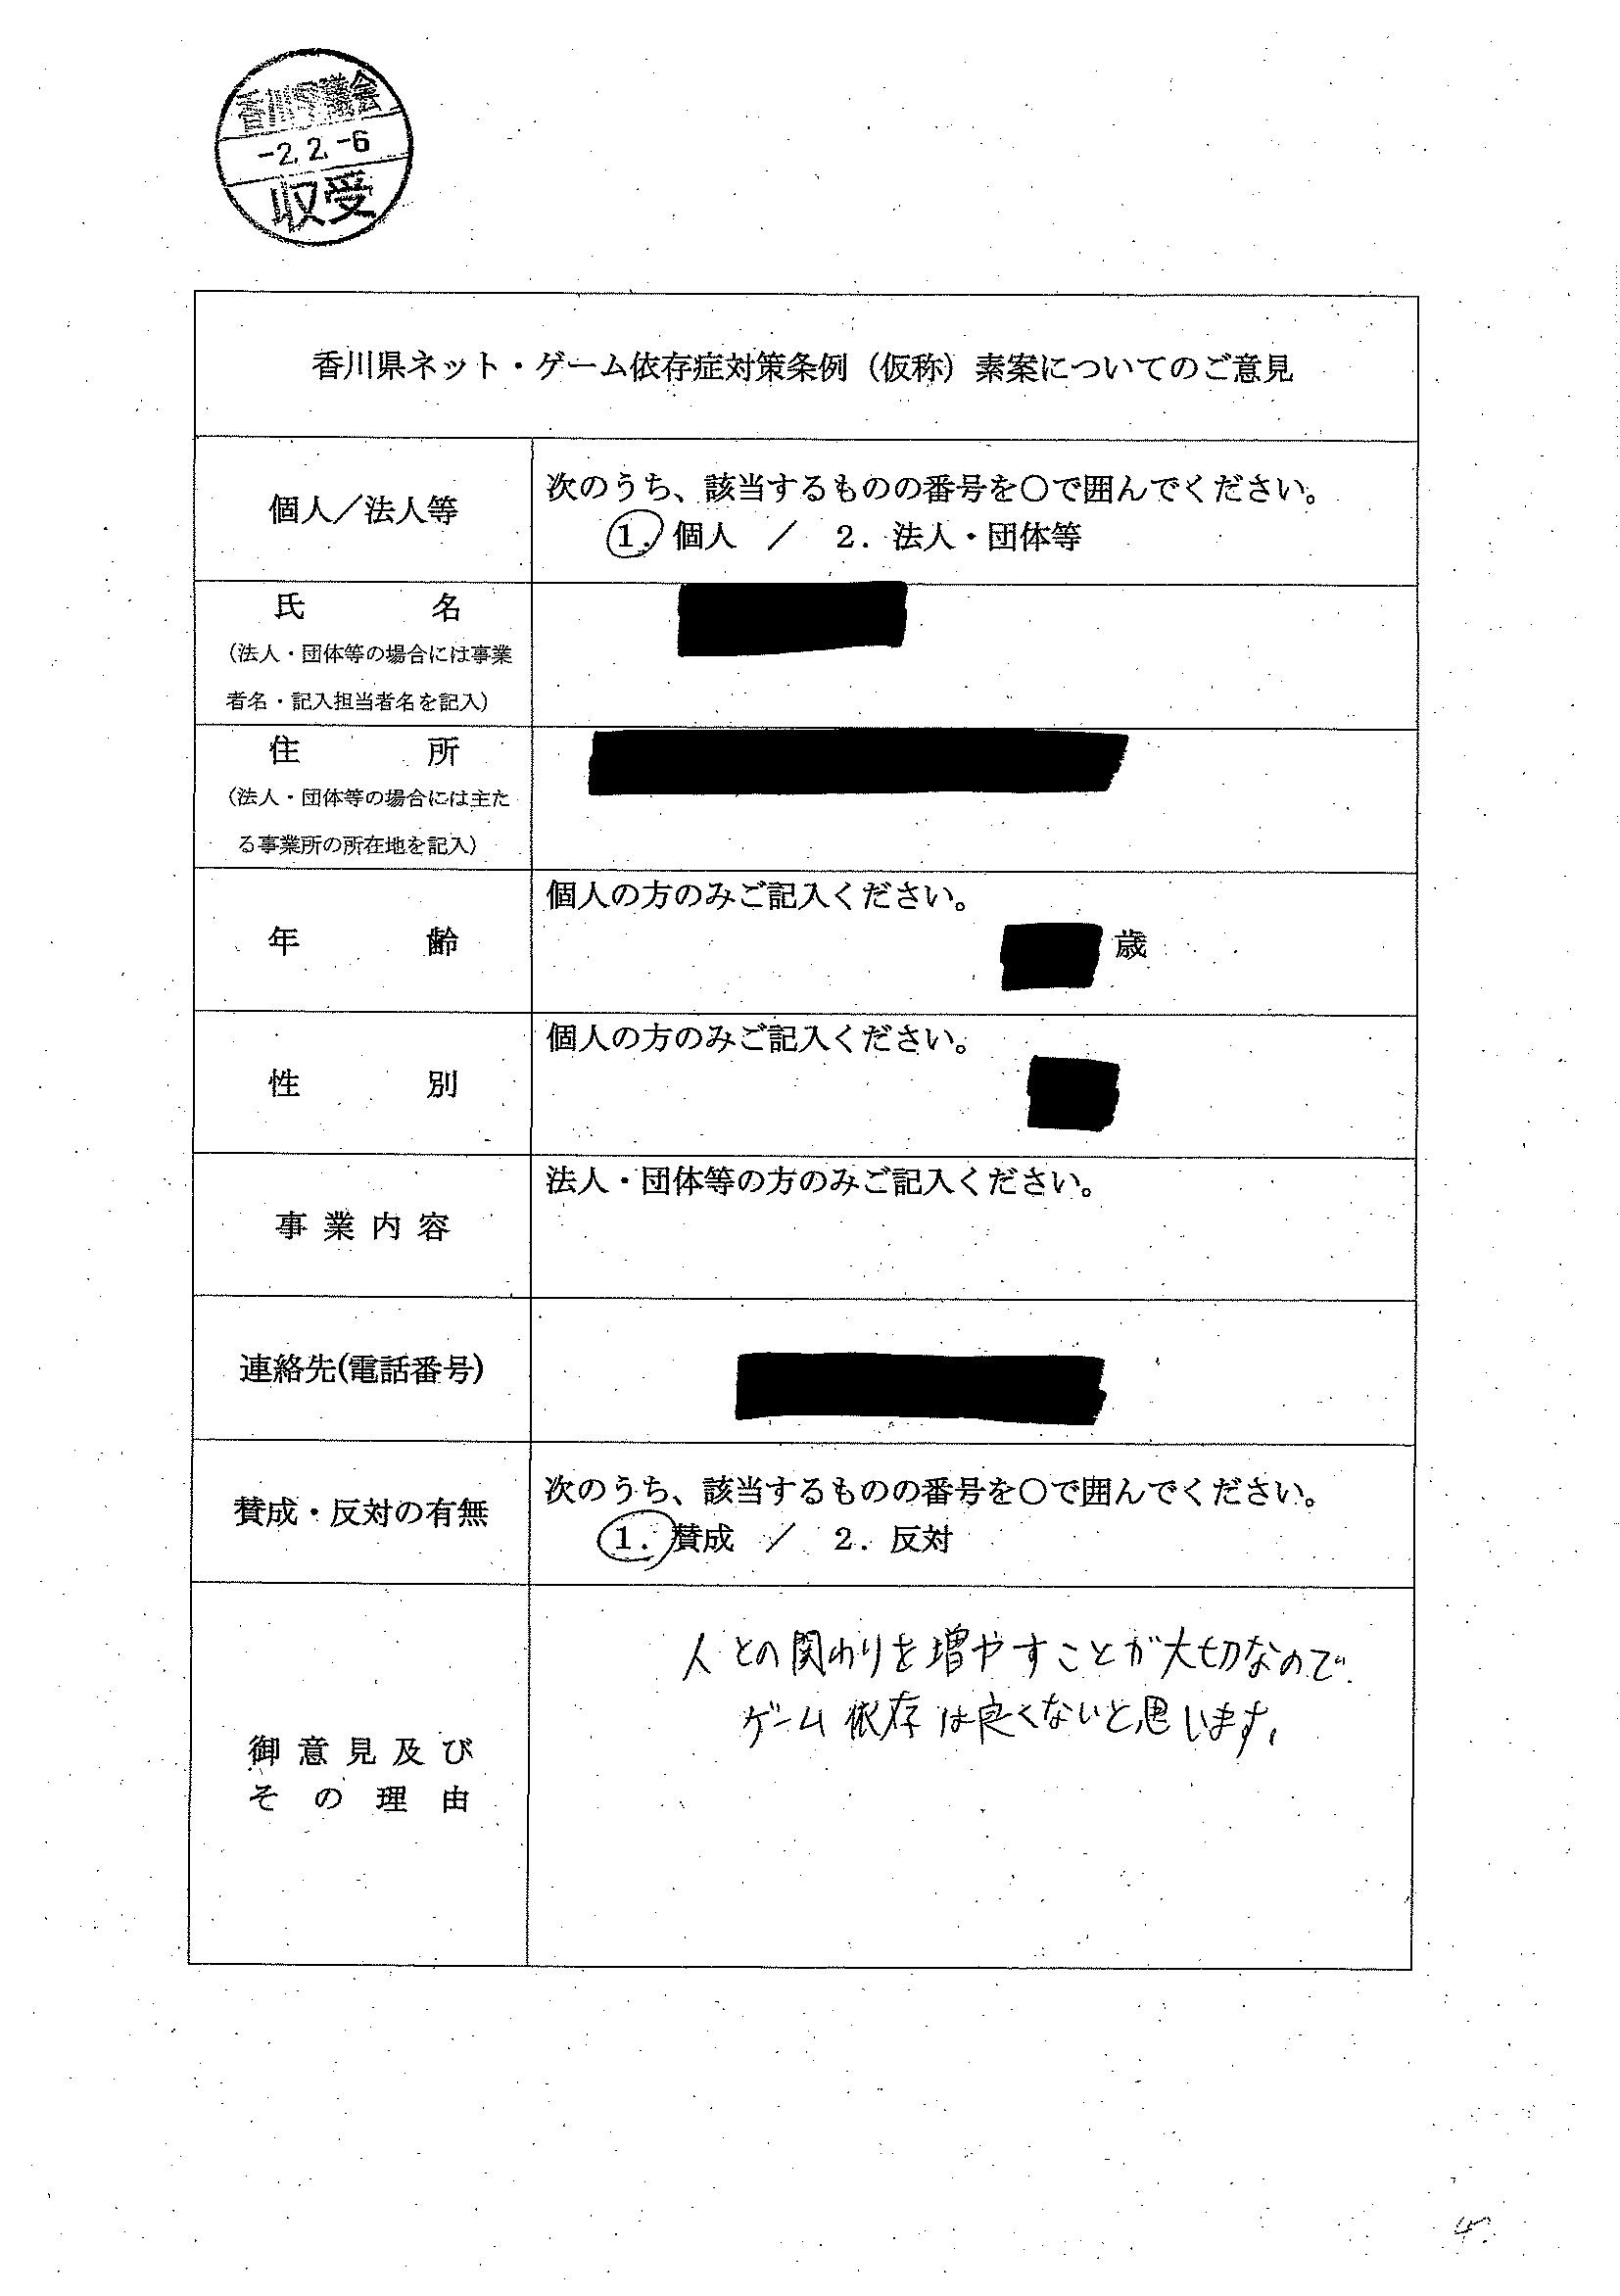 香川県議会
-2.2.-6
収受
香川県ネット・ゲーム依存症対策条例（仮称）素案についてのご意見
個人／法人等
次のうち、該当するものの番号を○で囲んでください。
1. 個人 ／ 2. 法人・団体等
氏名
（法人・団体等の場合には事業
者名・記入担当者名を記入）
住所
（法人・団体等の場合には主た
る事業所の所在地を記入）
年齢
個人の方のみご記入ください。
歳
性別
個人の方のみご記入ください。
事業内容
法人・団体等の方のみご記入ください。
連絡先(電話番号)
賛成・反対の有無
次のうち、該当するものの番号を○で囲んでください。
1. 賛成 ／ 2. 反対
御意見及び
その理由
人との関わりを増やすことが大切なので
ゲーム依存は良くないと思います。